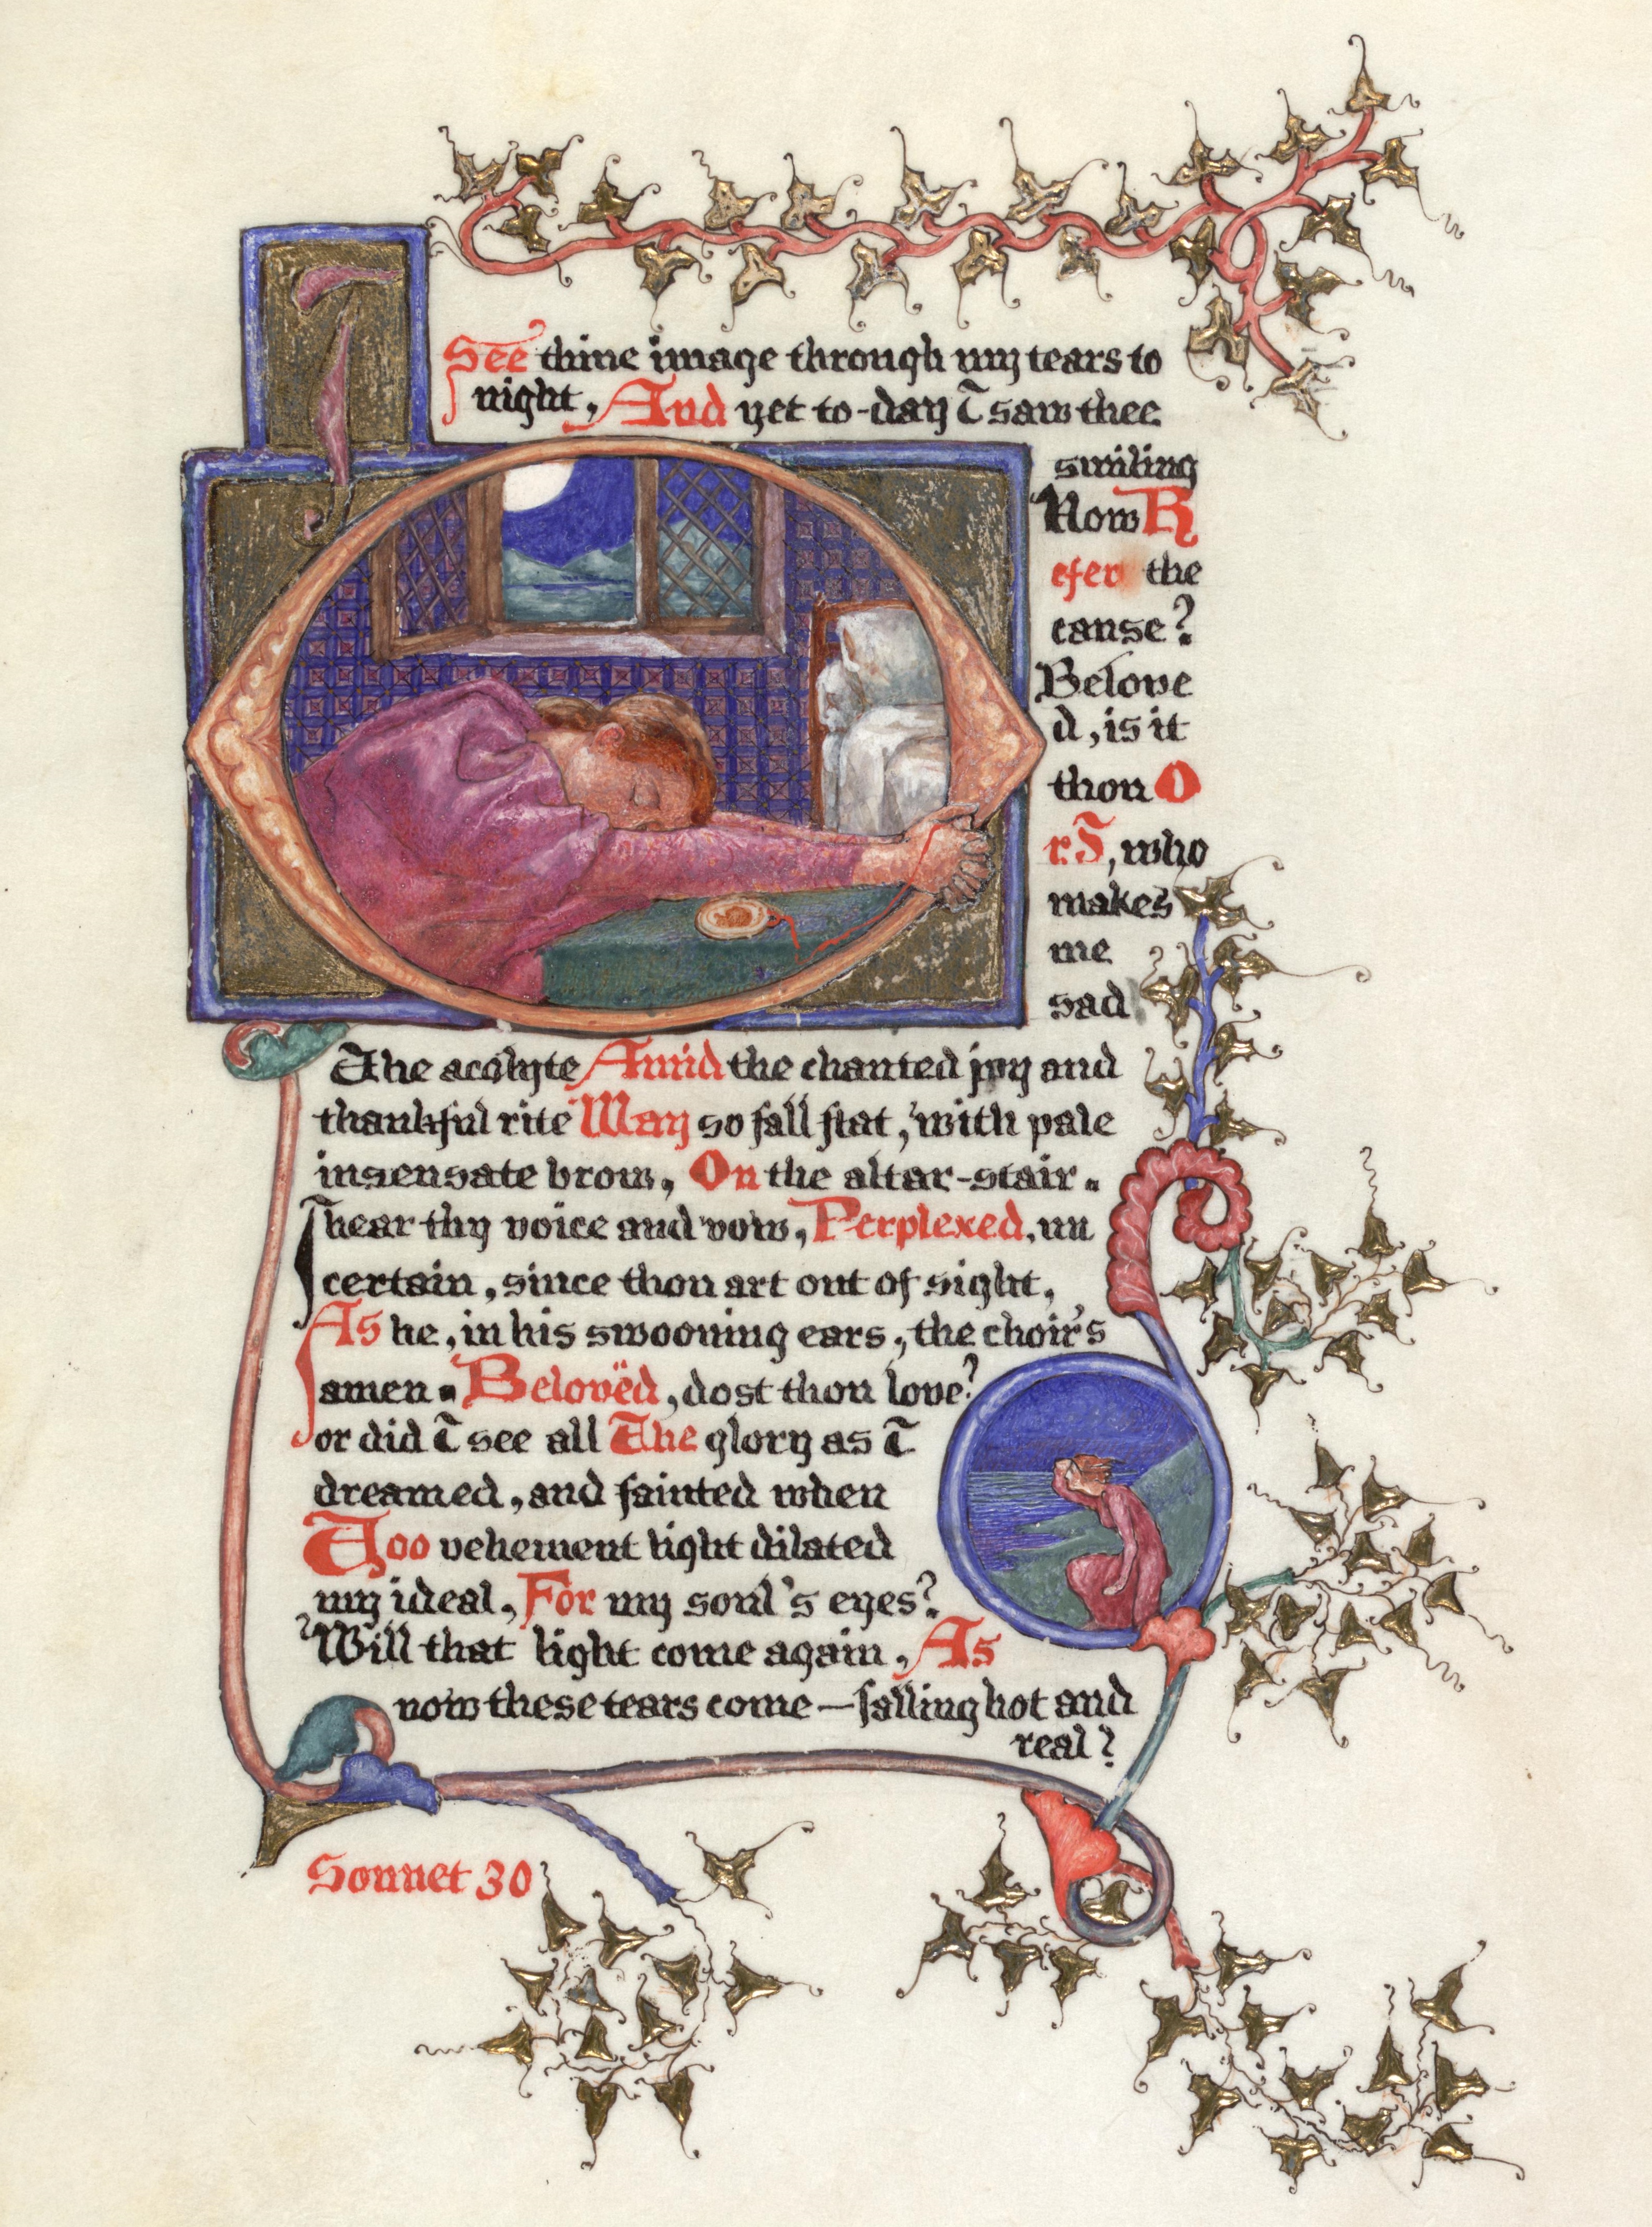 I See thine image through my tears to
night, And yet to-day I saw thee
smiling
How R
efer the
cause?
Belove
d, is it
thou O
r I, who
makes
me
sad
The acolyte Amid the chanted joy and
thankful rite May so fall flat, with pale
insensate brow, On the altar-stair.
I hear thy voice and vow, Perplexed, un
certain, since thou art out of sight,
As he, in his swooning ears, the choir's
amen. Belovëd, dost thou love?
or did I see all The glory as I
dreamed, and fainted when
Too vehement light dilated
my ideal, For my soul's eyes?
Will that light come again, As
now these tears come—falling hot and
real?
Sonnet 30